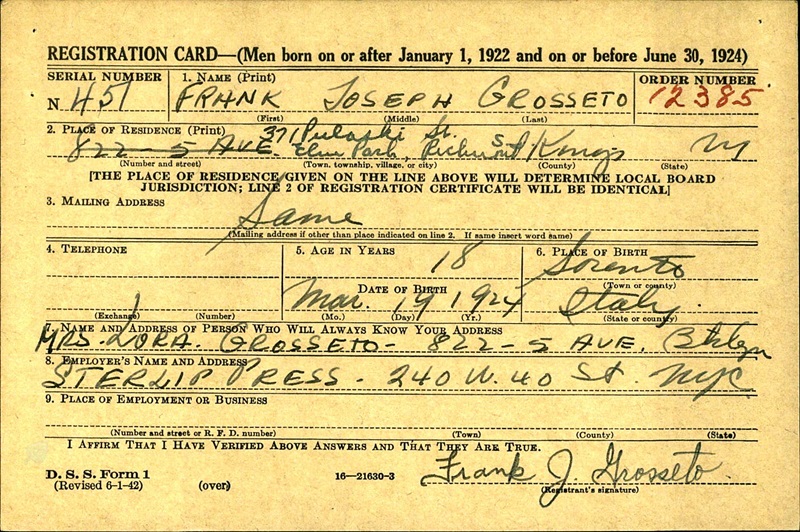 REGISTRATION CARD—(Men born on or after January 1, 1922 and on or before June 30, 1924)
SERIAL NUMBER 1. NAME (Print) ORDER NUMBER
N 451 FRANK JOSEPH GROSSETO 12385
(First) (Middle) (Last)
2. PLACE OF RESIDENCE (Print) 371 Pulaski St.
822 - 5 AVE. Elm Park, Richmond Kings NY
(Number and street) (Town, township, village, or city) (County) (State)
[THE PLACE OF RESIDENCE GIVEN ON THE LINE ABOVE WILL DETERMINE LOCAL BOARD
JURISDICTION; LINE 2 OF REGISTRATION CERTIFICATE WILL BE IDENTICAL]
3. MAILING ADDRESS
Same
(Mailing address if other than place indicated on line 2. If same insert word same)
4. TELEPHONE 5. AGE IN YEARS 6. PLACE OF BIRTH
18 Sorento
DATE OF BIRTH (Town or county)
Mar. 19 1924 Italy.
(Exchange) (Number) (Mo.) (Day) (Yr.) (State or country)
7. NAME AND ADDRESS OF PERSON WHO WILL ALWAYS KNOW YOUR ADDRESS
MRS. DORA. GROSSETO - 822 - 5 AVE. Bklyn
8. EMPLOYER'S NAME AND ADDRESS
STERLIP PRESS - 240 W. 40 St. NYC
9. PLACE OF EMPLOYMENT OR BUSINESS
(Number and street or R. F. D. number) (Town) (County) (State)
I AFFIRM THAT I HAVE VERIFIED ABOVE ANSWERS AND THAT THEY ARE TRUE.
D. S. S. Form 1
(Revised 6-1-42) (over) 16—21630-3 Frank J. Grosseto.
(Registrant's signature)